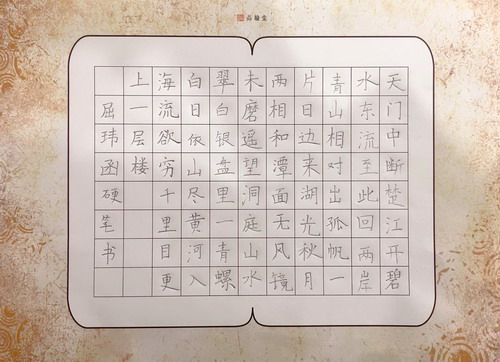 天门中断楚江开碧
水东流至此回两岸
青山相对出孤帆一
片日边来湖光秋月
两相和潭面无风镜
未磨遥望洞庭山水
翠白银盘里一青螺
白日依山尽黄河入
海流欲穷千里目更
上一层楼
屈玮函硬笔书